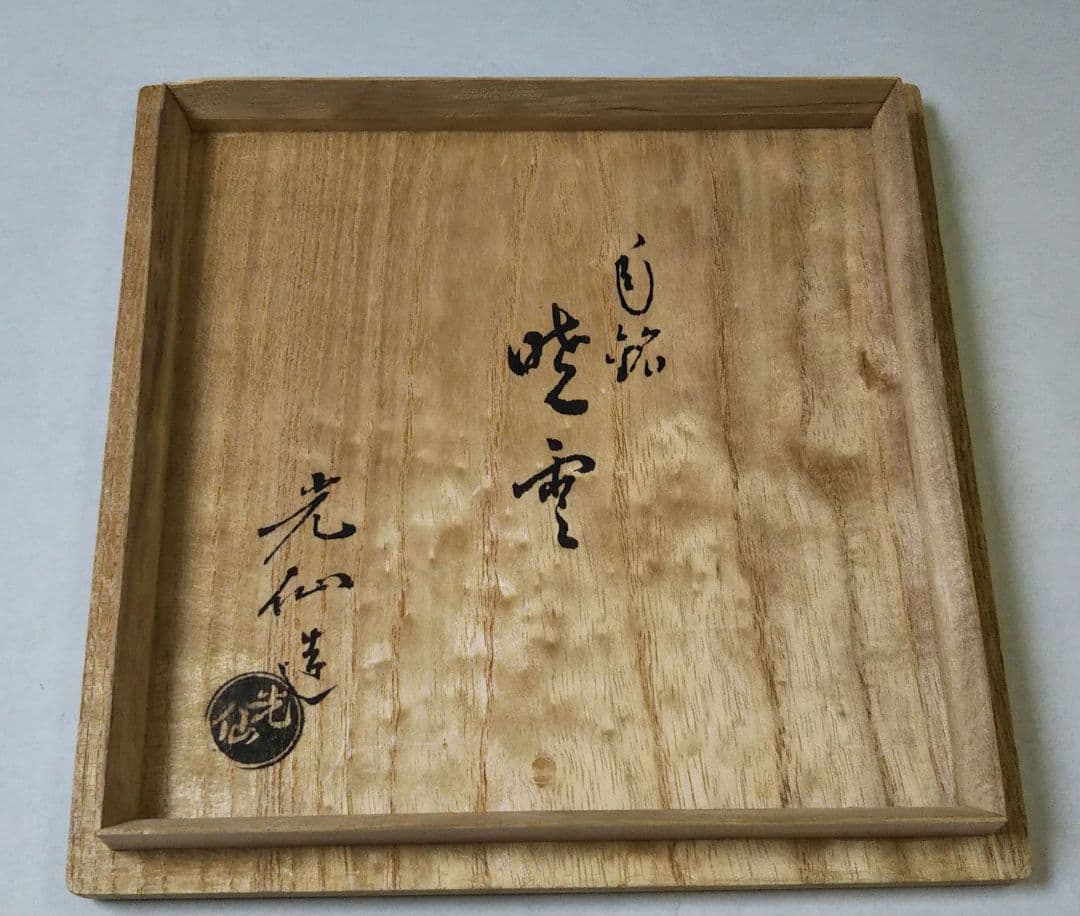 自銘
暁雲
光仙造
光仙